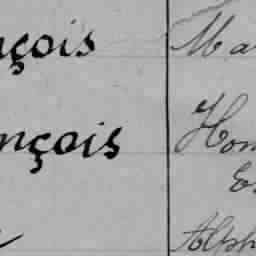 nçois Ma
nçois Hon
E
Alph